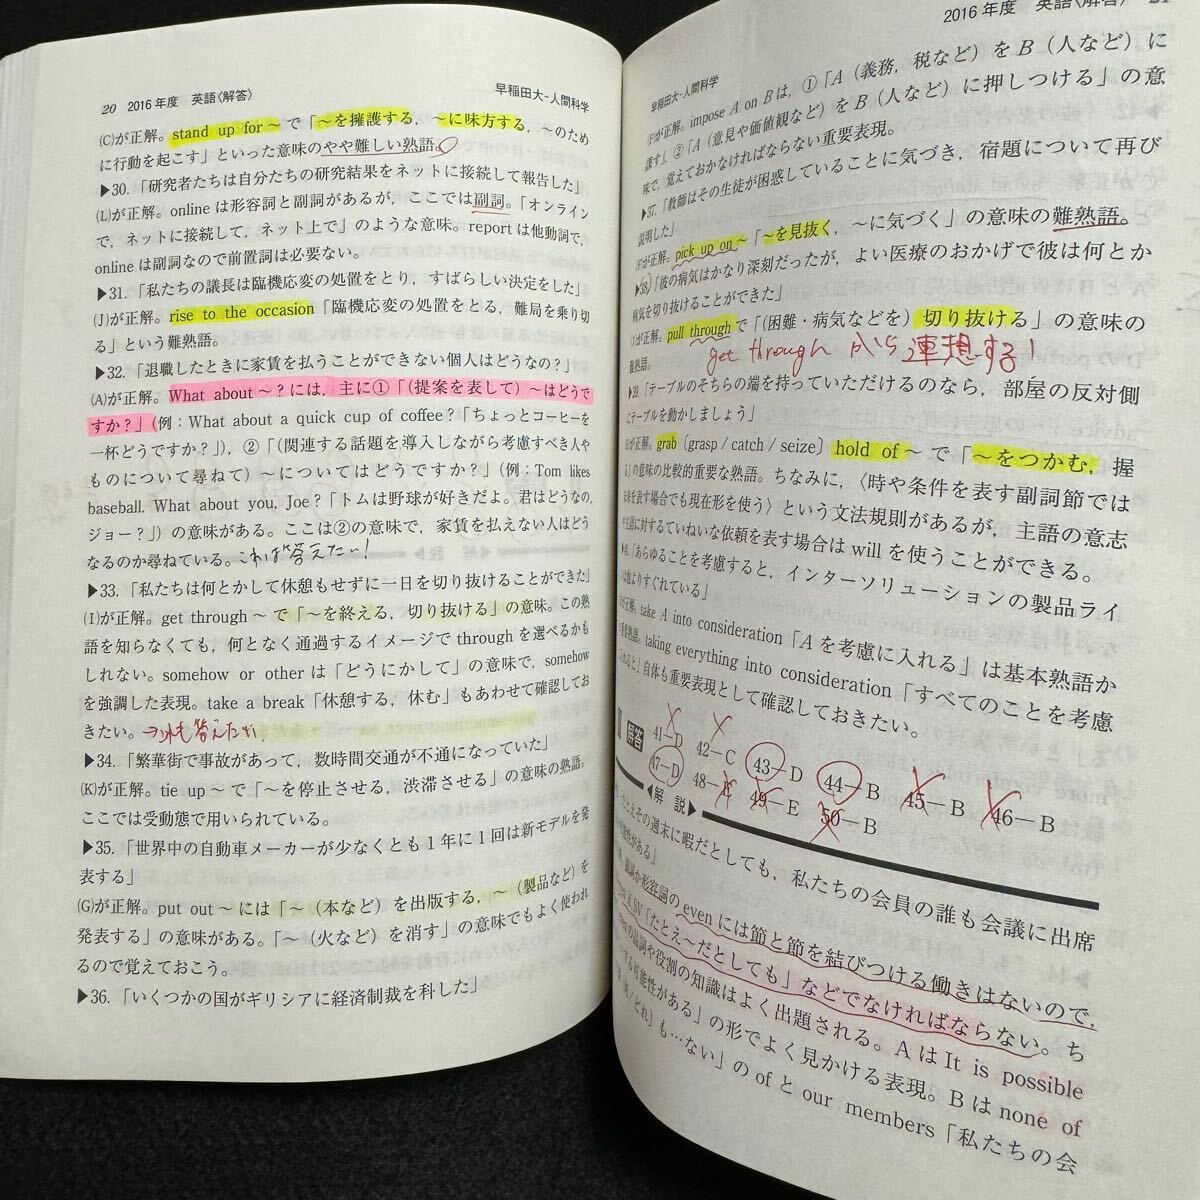 20 2016年度 英語〈解答〉 早稲田大-人間科学
(C)が正解。stand up for ~ で「~を擁護する，~に味方する，~のため
に行動を起こす」といった意味のやや難しい熟語。
▶30.「研究者たちは自分たちの研究結果をネットに接続して報告した」
(L)が正解。online は形容詞と副詞があるが，ここでは副詞。「オンライン
で，ネットに接続して，ネット上で」のような意味。report は他動詞で，
online は副詞なので前置詞は必要ない。
▶31.「私たちの議長は臨機応変の処置をとり，すばらしい決定をした」
(J)が正解。rise to the occasion「臨機応変の処置をとる，難局を乗り切
る」という難熟語。
▶32.「退職したときに家賃を払うことができない個人はどうなの？」
(A)が正解。What about ~ ? には，主に①「(提案を表して) ~はどうで
すか？」(例：What about a quick cup of coffee?「ちょっとコーヒーを
一杯どうですか？」)，②「(関連する話題を導入しながら考慮すべき人や
ものについて尋ねて) ~についてはどうですか？」(例：Tom likes
baseball. What about you, Joe?「トムは野球が好きだよ。君はどうなの，
ジョー？」) の意味がある。ここは②の意味で，家賃を払えない人はどう
なるのか尋ねている。これは答えたい！
▶33.「私たちは何とかして休憩もせずに一日を切り抜けることができた」
(I)が正解。get through ~ で「~を終える，切り抜ける」の意味。この熟
語を知らなくても，何となく通過するイメージで through を選べるかも
しれない。somehow or other は「どうにかして」の意味で，somehow
を強調した表現。take a break「休憩する，休む」もあわせて確認してお
きたい。
▶34.「繁華街で事故があって，数時間交通が不通になっていた」
(K)が正解。tie up ~ で「~を停止させる，渋滞させる」の意味の熟語。
ここでは受動態で用いられている。
▶35.「世界中の自動車メーカーが少なくとも1年に1回は新モデルを発
表する」
(G)が正解。put out ~ には「~ (本など) を出版する，~ (製品など) を
発表する」の意味がある。「~ (火など) を消す」の意味でもよく使われ
るので覚えておこう。
▶36.「いくつかの国がギリシアに経済制裁を科した」
早稲田大-人間科学 2016年度 英語〈解答〉 21
(F)が正解。impose A on B は，①「A (義務，税など) を B (人など) に
課す」，②「A (意見や価値観など) を B (人など) に押しつける」の意
味で，覚えておかなければならない重要表現。
▶37.「教師はその生徒が困惑していることに気づき，宿題について再び
説明した」
が正解。pick up on ~「~を見抜く，~に気づく」の意味の難熟語。
▶38.「彼の病気はかなり深刻だったが，よい医療のおかげで彼は何とか
病気を切り抜けることができた」
が正解。pull through で「(困難・病気などを) 切り抜ける」の意味の
難熟語。 get through から連想する！
39.「テーブルのそちらの端を持っていただけるのなら，部屋の反対側
にテーブルを動かしましょう」
が正解。grab〔grasp / catch / seize〕hold of ~ で「~をつかむ，握
る」の意味の比較的重要な熟語。ちなみに，〈時や条件を表す副詞節では
を表す場合でも現在形を使う〉という文法規則があるが，主語の意志
主語に対するていねいな依頼を表す場合は will を使うことができる。
「あらゆることを考慮すると，インターソリューションの製品ライ
は他よりすぐれている」
が正解。take A into consideration「A を考慮に入れる」は基本熟語か
重要熟語。taking everything into consideration「すべてのことを考慮
自体も重要表現として確認しておきたい。
解答 41—D 42—C 43—D 44—B 45—B 46—B
47—D 48—E 49—E 50—B
◀解 説▶
たとえその週末に暇だとしても，私たちの会員の誰も会議に出席
可能性がある」
形容詞の even には節と節を結びつける働きはないので，
SV「たとえ~だとしても」などでなければならない。ち
の品詞や役割の知識はよく出題される。A は It is possible
する可能性がある」の形でよく見かける表現。B は none of
も…ない」の of と our members「私たちの会